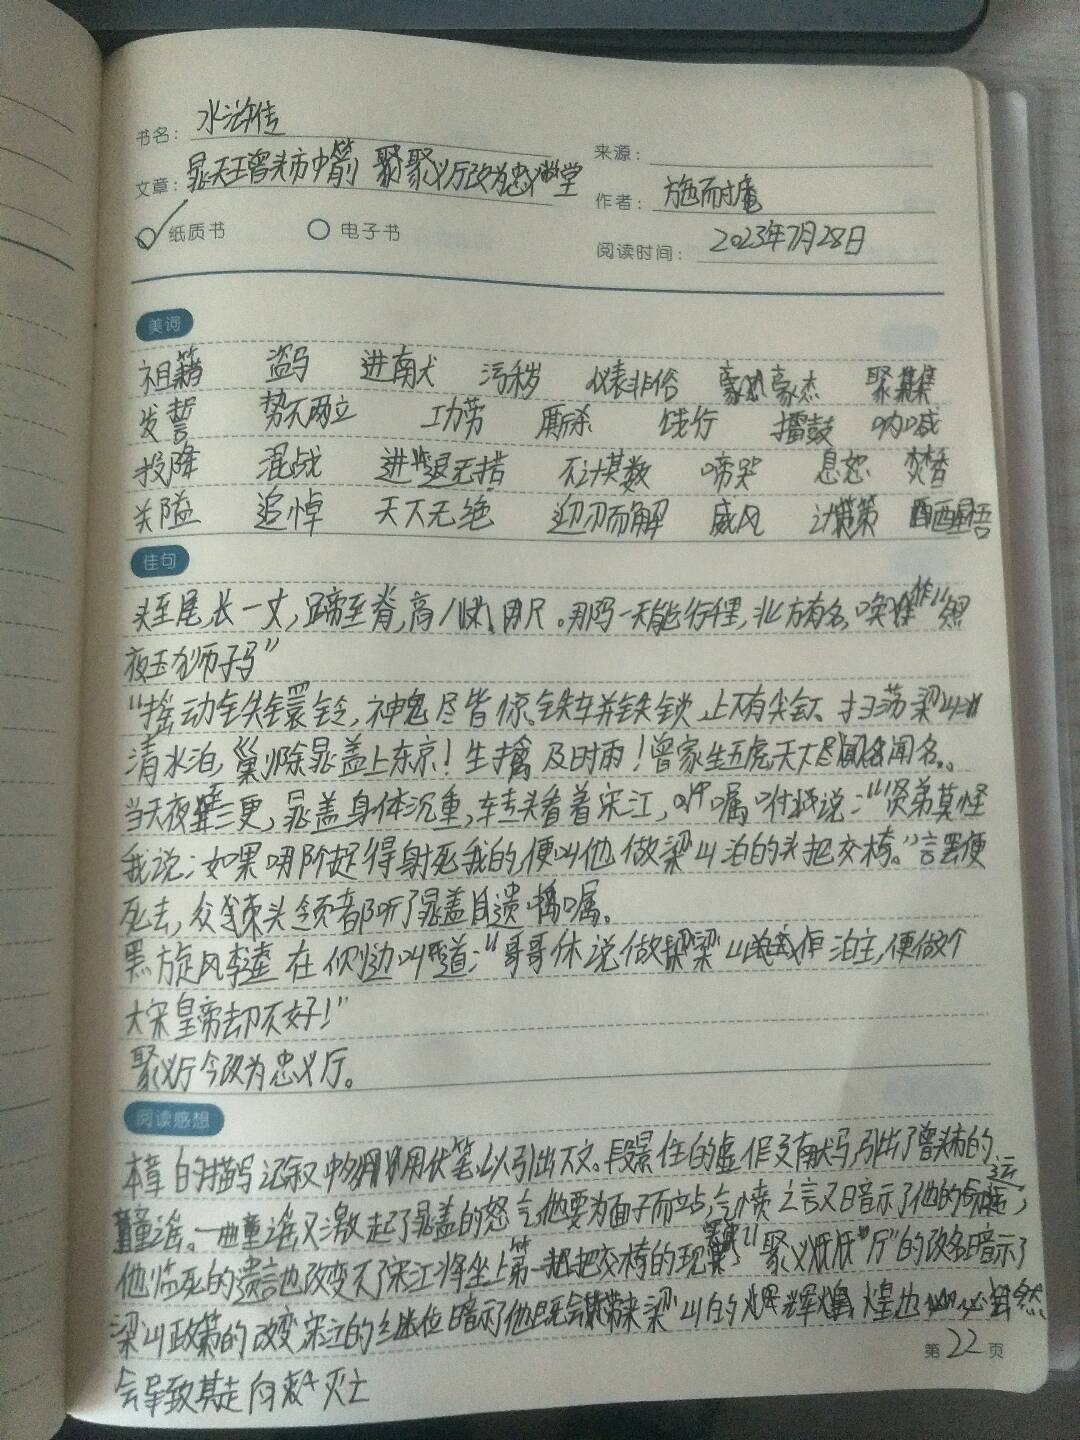 书名：水浒传
来源：
文章：晁天王曾头市中箭 聚义厅改为忠义堂
作者：施耐庵
纸质书 电子书
阅读时间：2023年7月28日
美词
祖籍 盗马 进南犬 污秽 仪表非俗 豪杰 聚集
发誓 势不两立 功劳 厮杀 饯行 擂鼓 呐喊
投降 混战 进退无措 不计其数 啼哭 息怒 焚香
关隘 追悼 天下无绝 迎刃而解 威风 计策 醒悟
佳句
头至尾，长一丈，蹄至脊，高八尺。那马一天能行千里，北方有名，唤作“照
夜玉狮子马”
“摇动铁镮铃，神鬼尽皆惊。铁车并铁锁，上下有尖钉。扫荡梁山
清水泊，剿除晁盖上东京！生擒及时雨！曾家生五虎天下尽闻名。
当天夜三更，晁盖身体沉重，转头看着宋江，嘱咐说：“贤弟莫怪
我说：如果哪个捉得射死我的，便叫他做梁山泊的头把交椅。”言罢便
死去，众头领都听了晁盖遗嘱。
黑旋风李逵在侧边叫道：“哥哥休说做梁山泊主，便做个
大宋皇帝却不好！”
聚义厅今改为忠义厅。
阅读感想
本章的描写记叙中多用伏笔以引出下文。段景住的虚作又献马，引出了曾头市的
童谣。一曲童谣又激起了晁盖的怒气，他要为面子而出站，气愤之言又日音示了他的
他临死的遗言也改变不了宋江将坐上第一把交椅的现实“聚义厅”的改名暗示了
梁山政策的改变，宋江的上位暗示他既会带来梁山的辉煌也必然
会导致其走向灭亡
第22页